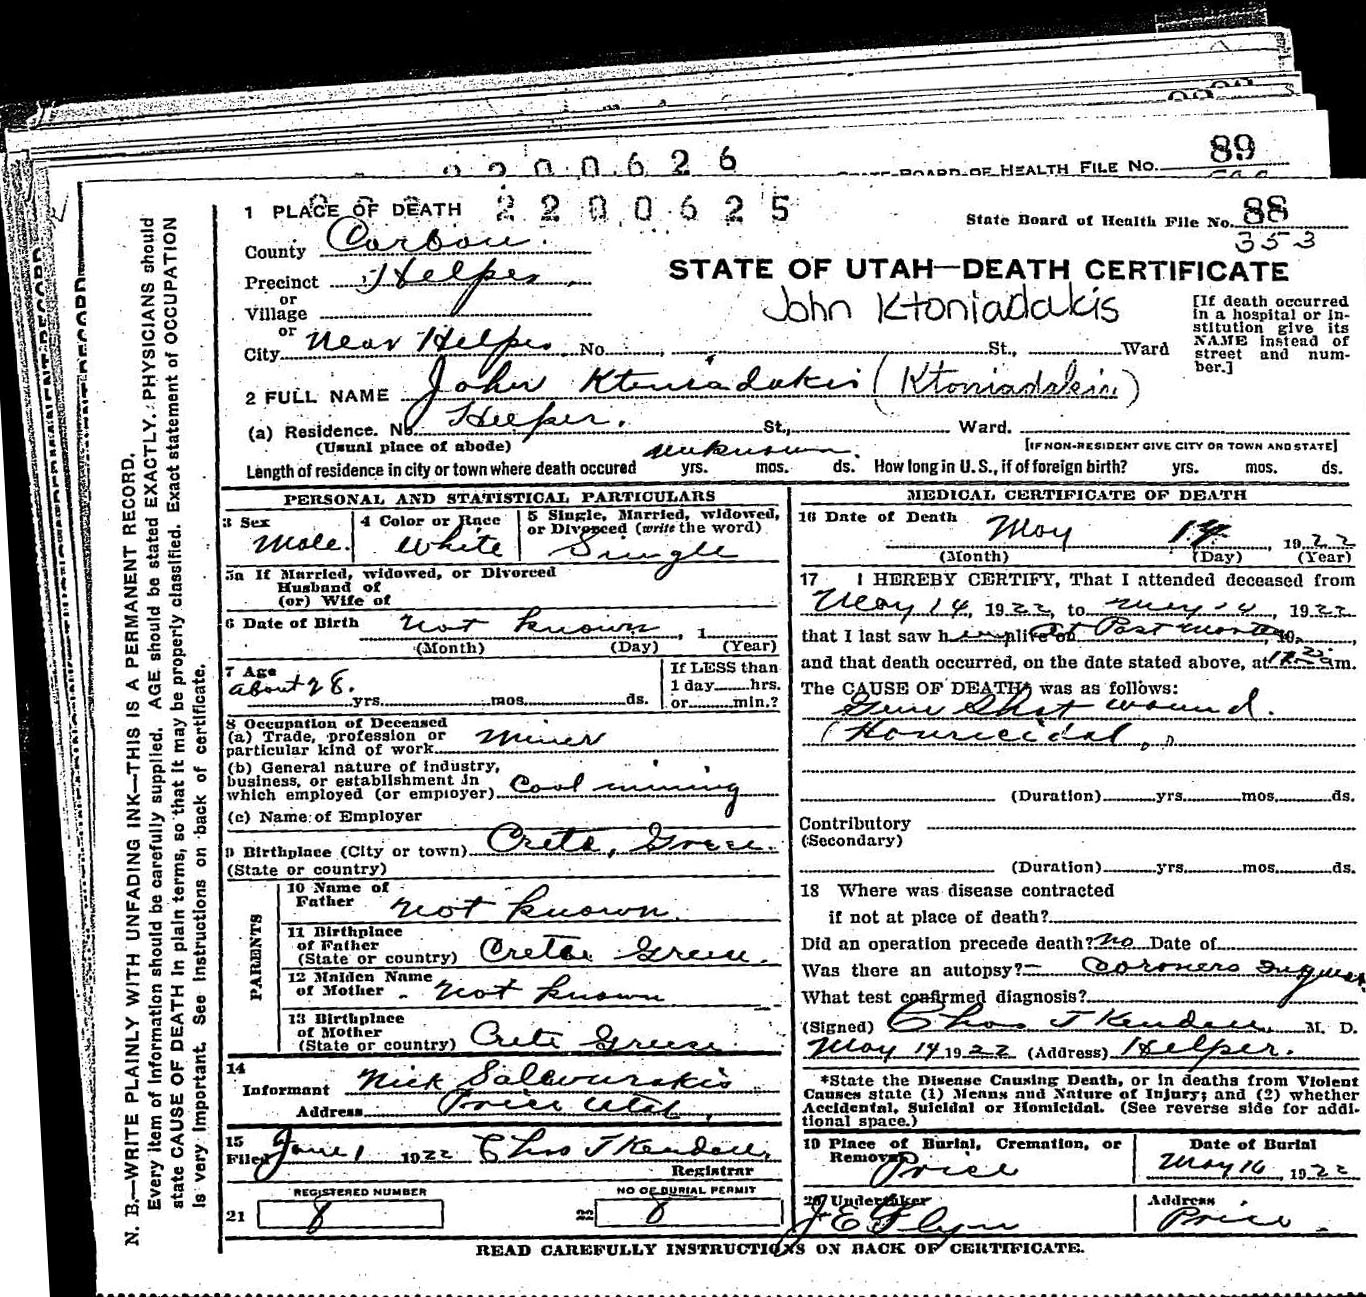 2200626
STATE BOARD OF HEALTH FILE NO. 89
1 PLACE OF DEATH 2200625
State Board of Health File No. 88
353
County Carbon.
Precinct Helper
or
Village
or
City near Helper No. St., Ward
STATE OF UTAH—DEATH CERTIFICATE
John Ktoniadakis
[If death occurred
in a hospital or in-
stitution give its
NAME instead of
street and num-
ber.]
2 FULL NAME John Kteniadakis (Ktoniadakis)
(a) Residence. No. Helper. St., Ward.
(Usual place of abode) [IF NON-RESIDENT GIVE CITY OR TOWN AND STATE]
Length of residence in city or town where death occured unknown. yrs. mos. ds. How long in U.S., if of foreign birth? yrs. mos. ds.
PERSONAL AND STATISTICAL PARTICULARS
3 Sex Male.
4 Color or Race White
5 Single, Married, widowed,
or Divorced (write the word)
Single
5a If Married, widowed, or Divorced
Husband of
(or) Wife of
6 Date of Birth not known, 1
(Month) (Day) (Year)
7 Age
about 28. yrs. mos. ds.
If LESS than
1 day hrs.
or min.?
8 Occupation of Deceased
(a) Trade, profession or
particular kind of work Miner
(b) General nature of industry,
business, or establishment in
which employed (or employer) Coal mining
(c) Name of Employer
9 Birthplace (City or town) Crete, Greece.
(State or country)
PARENTS
10 Name of
Father not known.
11 Birthplace
of Father
(State or country) Crete Greece.
12 Maiden Name
of Mother not known
13 Birthplace
of Mother
(State or country) Crete Greece
14
Informant Nick
Address Price Utah.
15
Filed June 1 1922 Chas T Kendall
Registrar
REGISTERED NUMBER
21 8
NO OF BURIAL PERMIT
22 8
MEDICAL CERTIFICATE OF DEATH
16 Date of Death May 14, 1922
(Month) (Day) (Year)
17 I HEREBY CERTIFY, That I attended deceased from
May 14, 1922, to May 14, 1922
that I last saw him alive on at Post mortem, 19,
and that death occurred, on the date stated above, at am.
The CAUSE OF DEATH* was as follows:
Gun Shot wound.
(Homicidal.)
(Duration) yrs. mos. ds.
Contributory
(Secondary)
(Duration) yrs. mos. ds.
18 Where was disease contracted
if not at place of death?
Did an operation precede death? No Date of
Was there an autopsy?— Coroners Inquest
What test confirmed diagnosis?
(Signed) Chas T Kendall, M. D.
May 14 1922 (Address) Helper.
*State the Disease Causing Death, or in deaths from Violent
Causes state (1) Means and Nature of Injury; and (2) whether
Accidental, Suicidal or Homicidal. (See reverse side for addi-
tional space.)
19 Place of Burial, Cremation, or
Removal Price
Date of Burial
May 16, 1922
20 Undertaker
J E Flynn
Address
Price
READ CAREFULLY INSTRUCTIONS ON BACK OF CERTIFICATE.
N. B.—WRITE PLAINLY WITH UNFADING INK—THIS IS A PERMANENT RECORD.
Every item of information should be carefully supplied. AGE should be stated EXACTLY. PHYSICIANS should
state CAUSE OF DEATH in plain terms, so that it may be properly classified. Exact statement of OCCUPATION
is very important. See instructions on back of certificate.